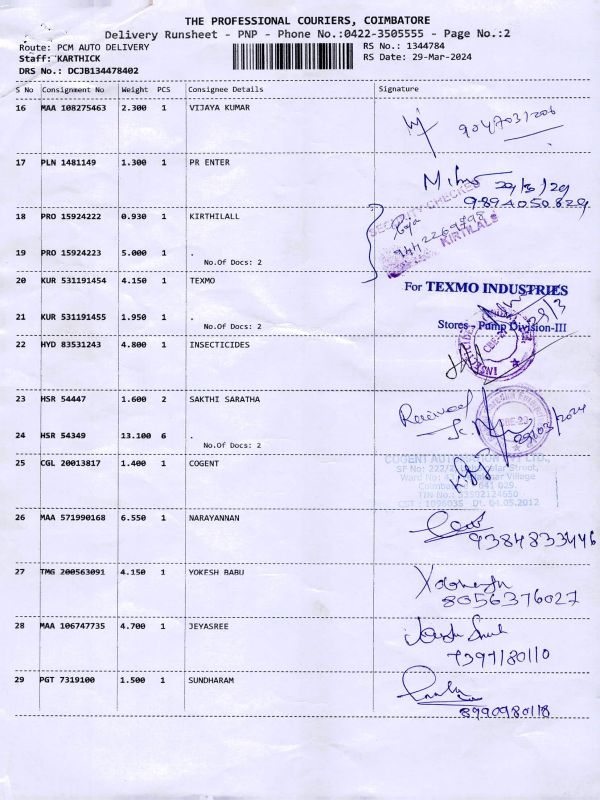 THE PROFESSIONAL COURIERS, COIMBATORE
Delivery Runsheet - PNP - Phone No.:0422-3505555 - Page No.:2
Route: PCM AUTO DELIVERY RS No.: 1344784
Staff: KARTHICK RS Date: 29-Mar-2024
DRS No.: DCJB134478402
S No Consignment No Weight PCS Consignee Details Signature
16 MAA 108275463 2.300 1 VIJAYA KUMAR
9047031206
17 PLN 1481149 1.300 1 PR ENTER
18 PRO 15924222 0.930 1 KIRTHILALL
SECURITY CHECKED
KIRTILALS
19 PRO 15924223 5.000 1 .
No.Of Docs: 2
20 KUR 531191454 4.150 1 TEXMO
For TEXMO INDUSTRIES
29/3
21 KUR 531191455 1.950 1 .
No.Of Docs: 2
Stores - Pump Division-III
22 HYD 83531243 4.800 1 INSECTICIDES
23 HSR 54447 1.600 2 SAKTHI SARATHA
Received
29/03/2024
24 HSR 54349 13.100 6 .
No.Of Docs: 2
25 CGL 20013817 1.400 1 COGENT
26 MAA 571990168 6.550 1 NARAYANNAN
9384833446
27 TMG 200563091 4.150 1 YOKESH BABU
8056376027
28 MAA 106747735 4.700 1 JEYASREE
7397180110
29 PGT 7319100 1.500 1 SUNDHARAM
8990980118